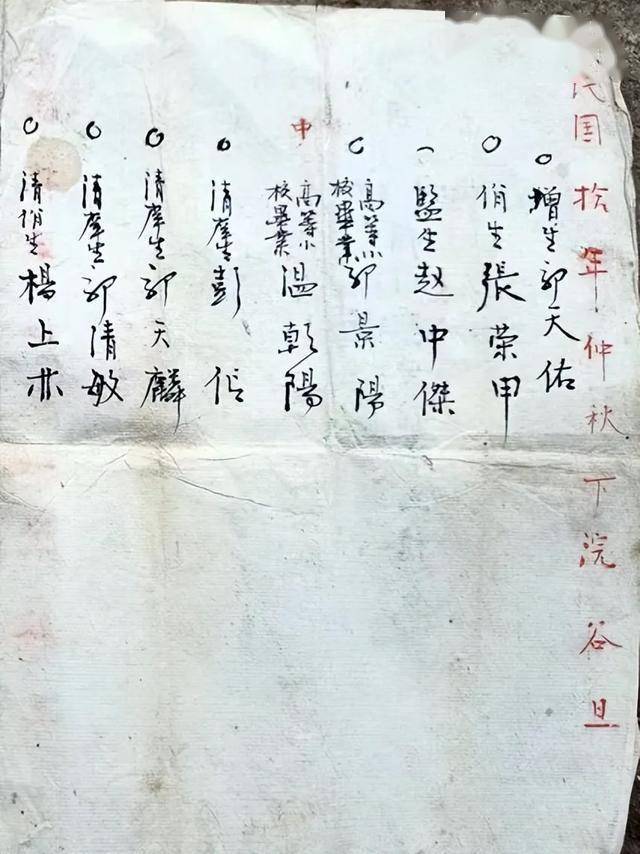 民国拾年仲秋下浣谷旦
增生郭天佑
佾生張荣甲
監生趙中傑
高等小校畢業郭景陽
中
高等小校畢業温乾陽
清庠生彭侶
清庠生郭天麟
清庠生郭清敏
清佾生楊上林